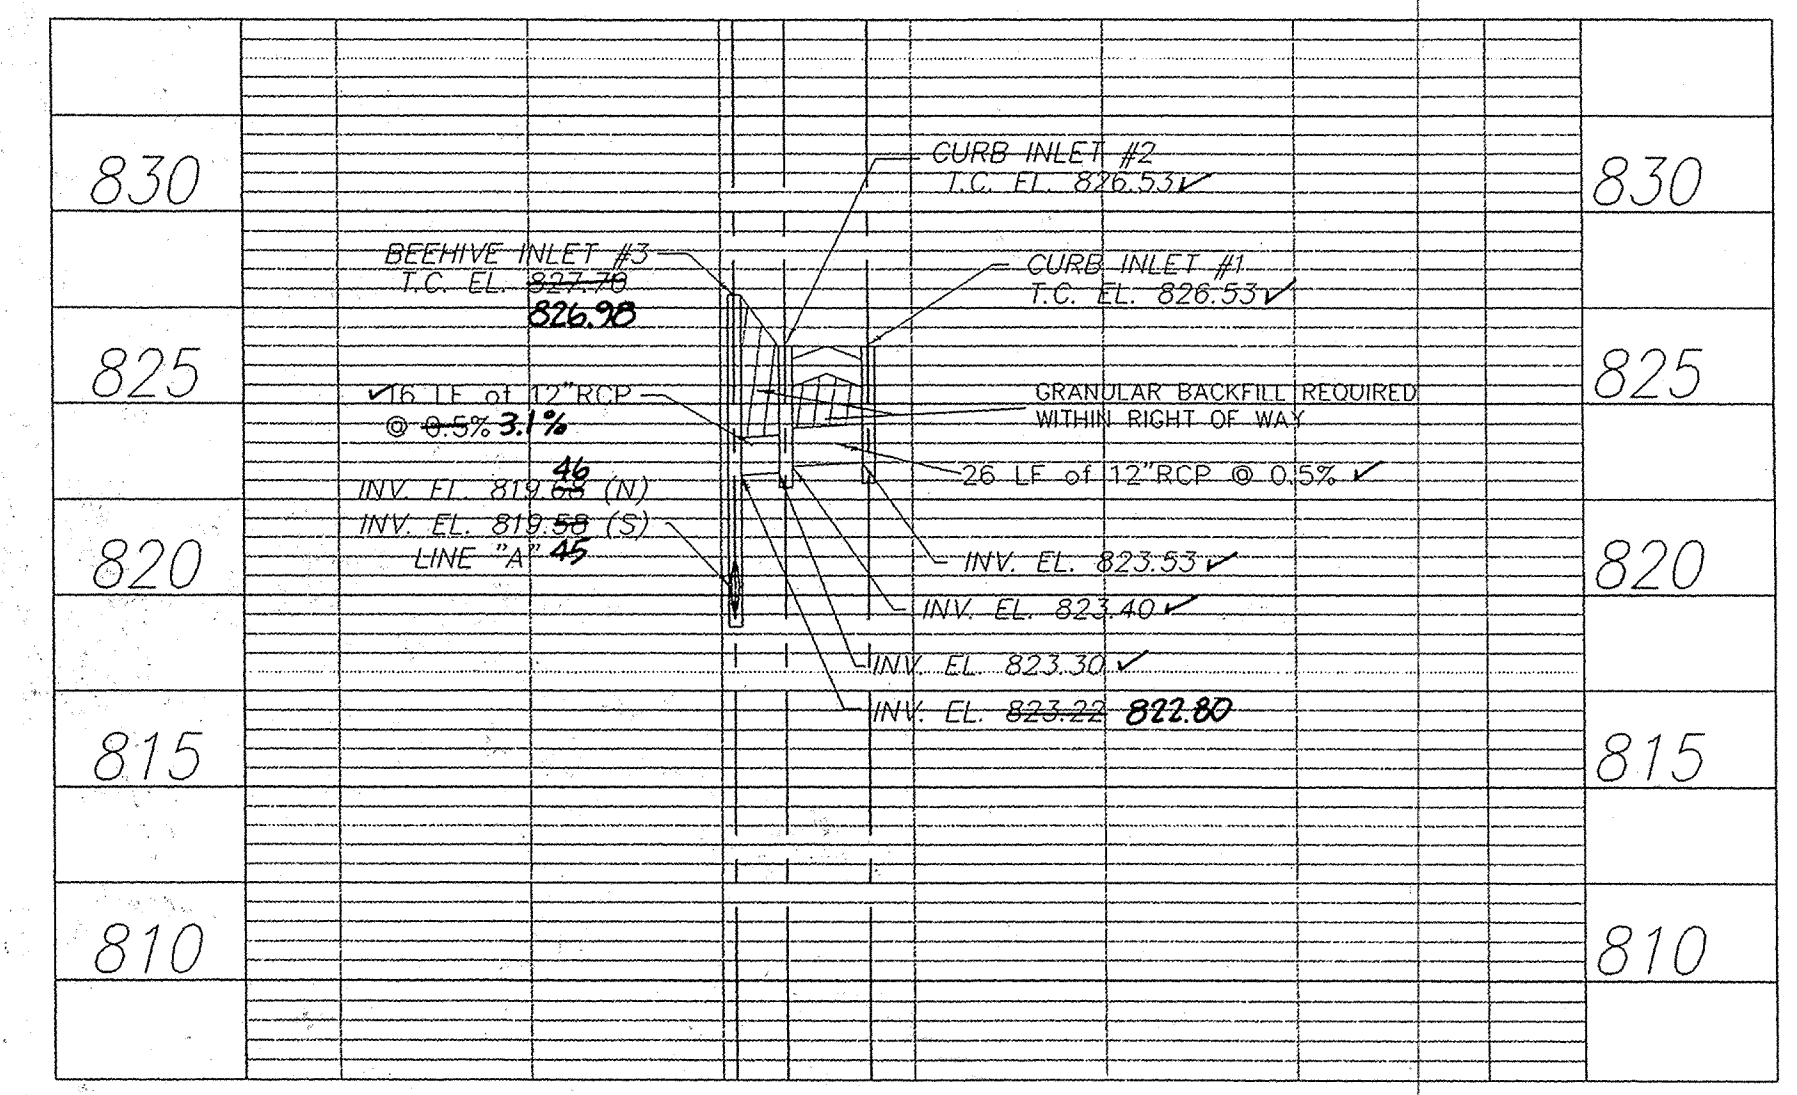 830
825
820
815
810
CURB INLET #2
T.C. EL. 826.53✓
BEEHIVE INLET #3
T.C. EL. 827.70
826.98
CURB INLET #1
T.C. EL. 826.53✓
✓16 LF of 12"RCP
@ 0.5% 3.1%
GRANULAR BACKFILL REQUIRED
WITHIN RIGHT OF WAY
26 LF of 12"RCP @ 0.5% ✓
46
INV. EL. 819.68 (N)
INV. EL. 819.58 (S)
LINE "A" 45
INV. EL. 823.53 ✓
INV. EL. 823.40 ✓
INV. EL. 823.30 ✓
INV. EL. 823.22 822.80
830
825
820
815
810